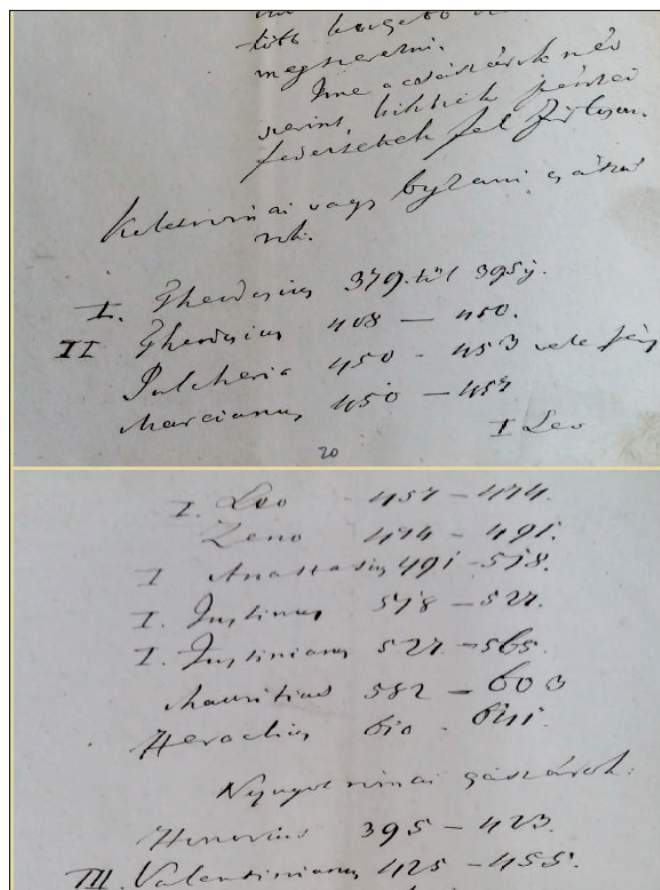 megszerezni.
Ime a császárok név
szerint, kiknek pénzei
fedeztettek fel
Keletrómai vagy byzanti császá
rok.
I. Theodosius 379.től 395ig.
II Theodosius 408 — 450.
Pulcheria 450 - 453
Marcianus 450 — 457
I Leo
20
I. Leo 457 — 474.
Zeno 474 — 491.
I Anastasius 491 - 518.
I. Justinus 518 — 527.
I. Justinianus 527 — 565.
Mauritius 582 — 603
Heraclius 610 - 641.
Nyugot római császárok:
Honorius 395 — 423.
III. Valentinianus 425 — 455.